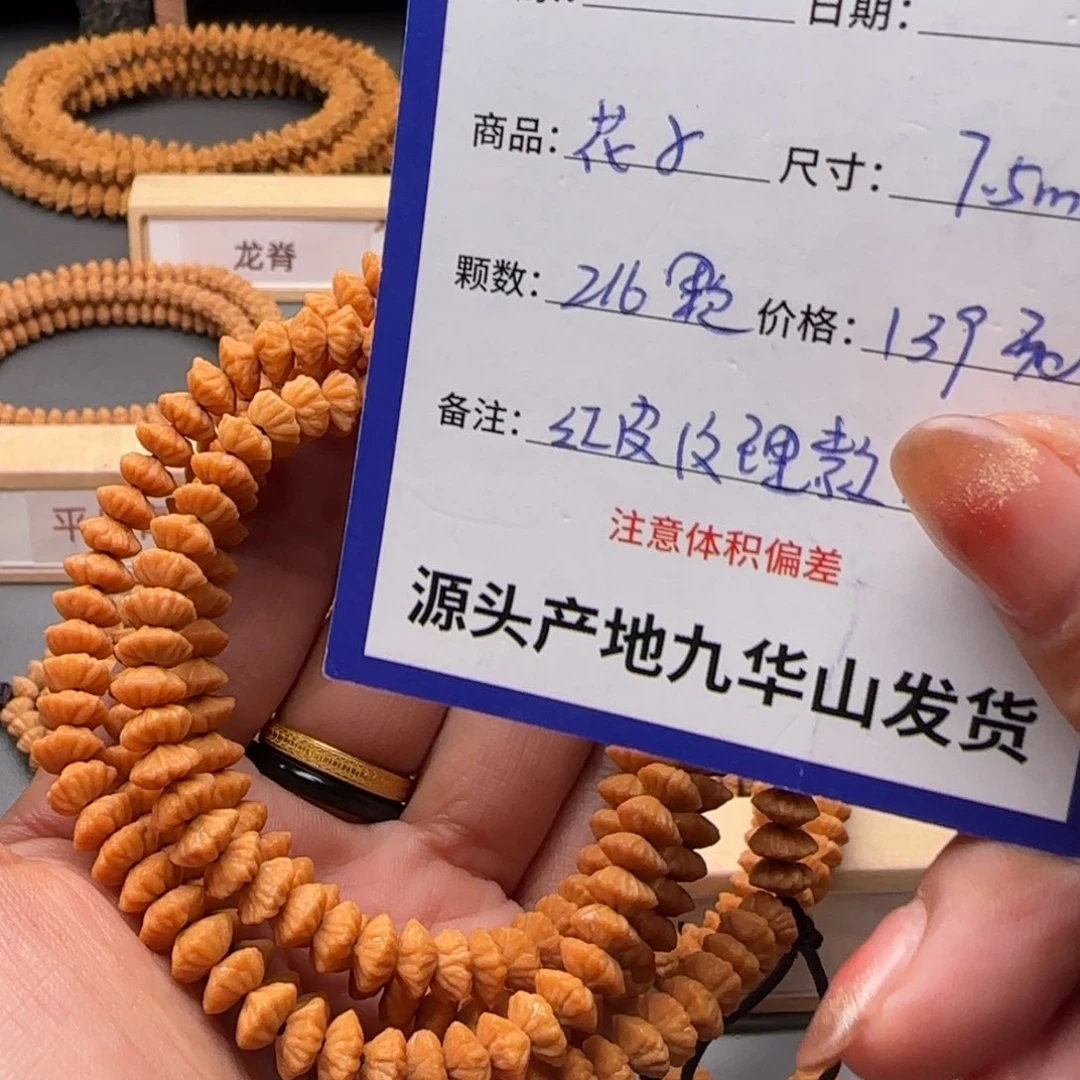 日期:
商品: 花口 尺寸: 7.5m
颗数: 216颗 价格: 139元
备注: 红皮纹理款
注意体积偏差
源头产地九华山发货
龙脊
平